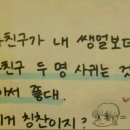 친구가 내 쌩얼보다
친구 두 명 사귀는 것
아서 좋대.
거 칭찬이지?